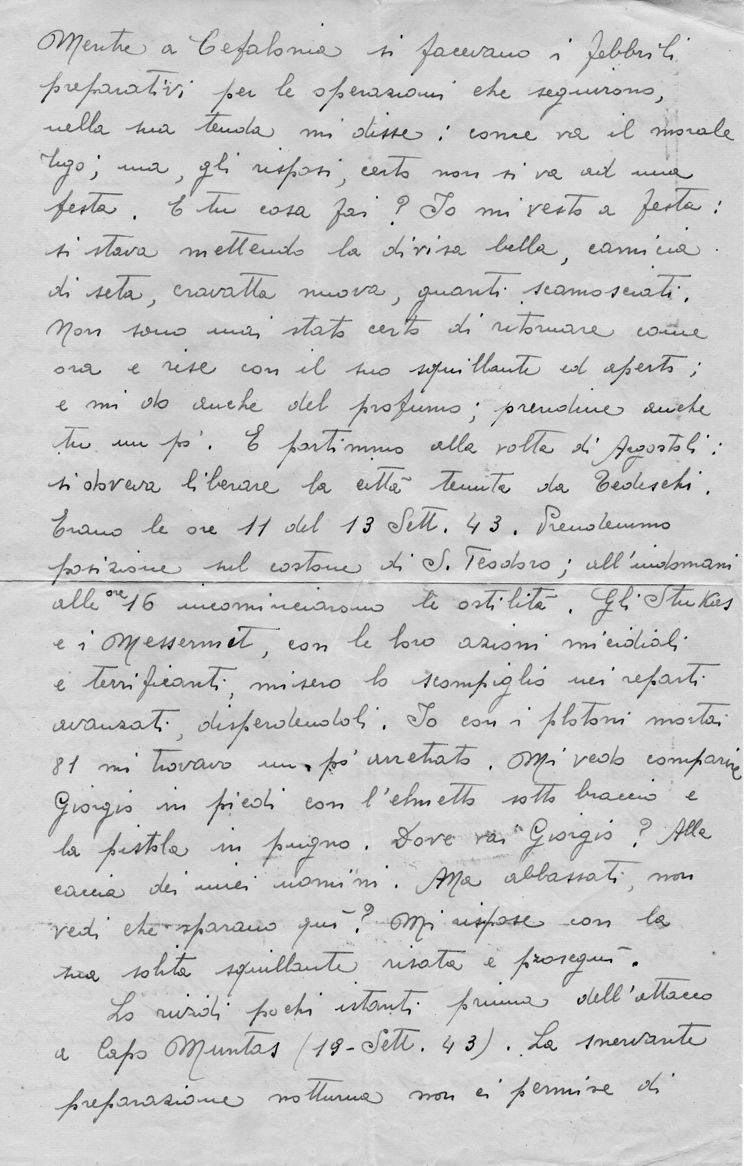 Mentre a Cefalonia si facevano i febbrili
preparativi per le operazioni che seguirono,
nella sua tenda mi disse: come va il morale
Ugo; ma, gli risposi, certo non si va ad una
festa. E tu cosa fai? Io mi vesto a festa:
si stava mettendo la divisa bella, camicia
di seta, cravatta nuova, guanti scamosciati.
Non sono mai stato certo di ritornare come
ora e rise con il suo squillante ed aperto;
e mi do anche del profumo; prendine anche
tu un pò. E partimmo alla volta di Argostoli:
si doveva liberare la città tenuta da Tedeschi.
Erano le ore 11 del 13 Sett. 43. Prendemmo
posizione sul costone di S. Teodoro; all'indomani
alle ore 16 incominciarono le ostilità. Gli Stukas
e i Messermit, con le loro azioni micidiali
e terrificanti, misero lo scompiglio nei reparti
avanzati, disperdendoli. Io con i plotoni mortai
81 mi trovavo un pò arretrato. Mi vedo comparire
Giorgio in piedi con l'elmetto sotto braccio e
la pistola in pugno. Dove vai Giorgio? Alla
caccia dei miei uomini. Ma abbassati, non
vedi che sparano quì? Mi rispose con la
sua solita squillante risata e proseguì.
Lo rividi pochi istanti prima dell'attacco
a Capo Muntas (19-Sett. 43). La snervante
preparazione notturna non ci permise di